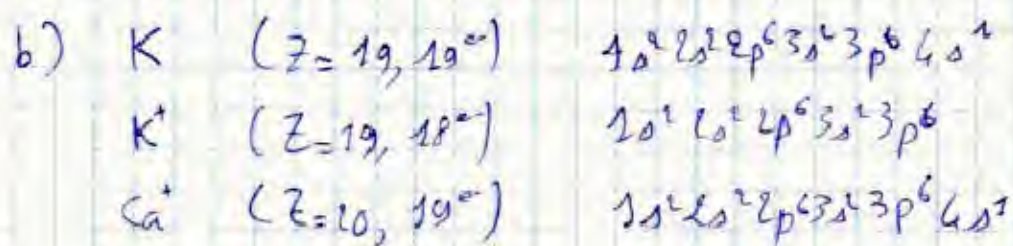 b) K (Z=19, 19e⁻) 1s²2s²2p⁶3s²3p⁶4s¹
K⁺ (Z=19, 18e⁻) 1s²2s²2p⁶3s²3p⁶
Ca⁺ (Z=20, 19e⁻) 1s²2s²2p⁶3s²3p⁶4s¹